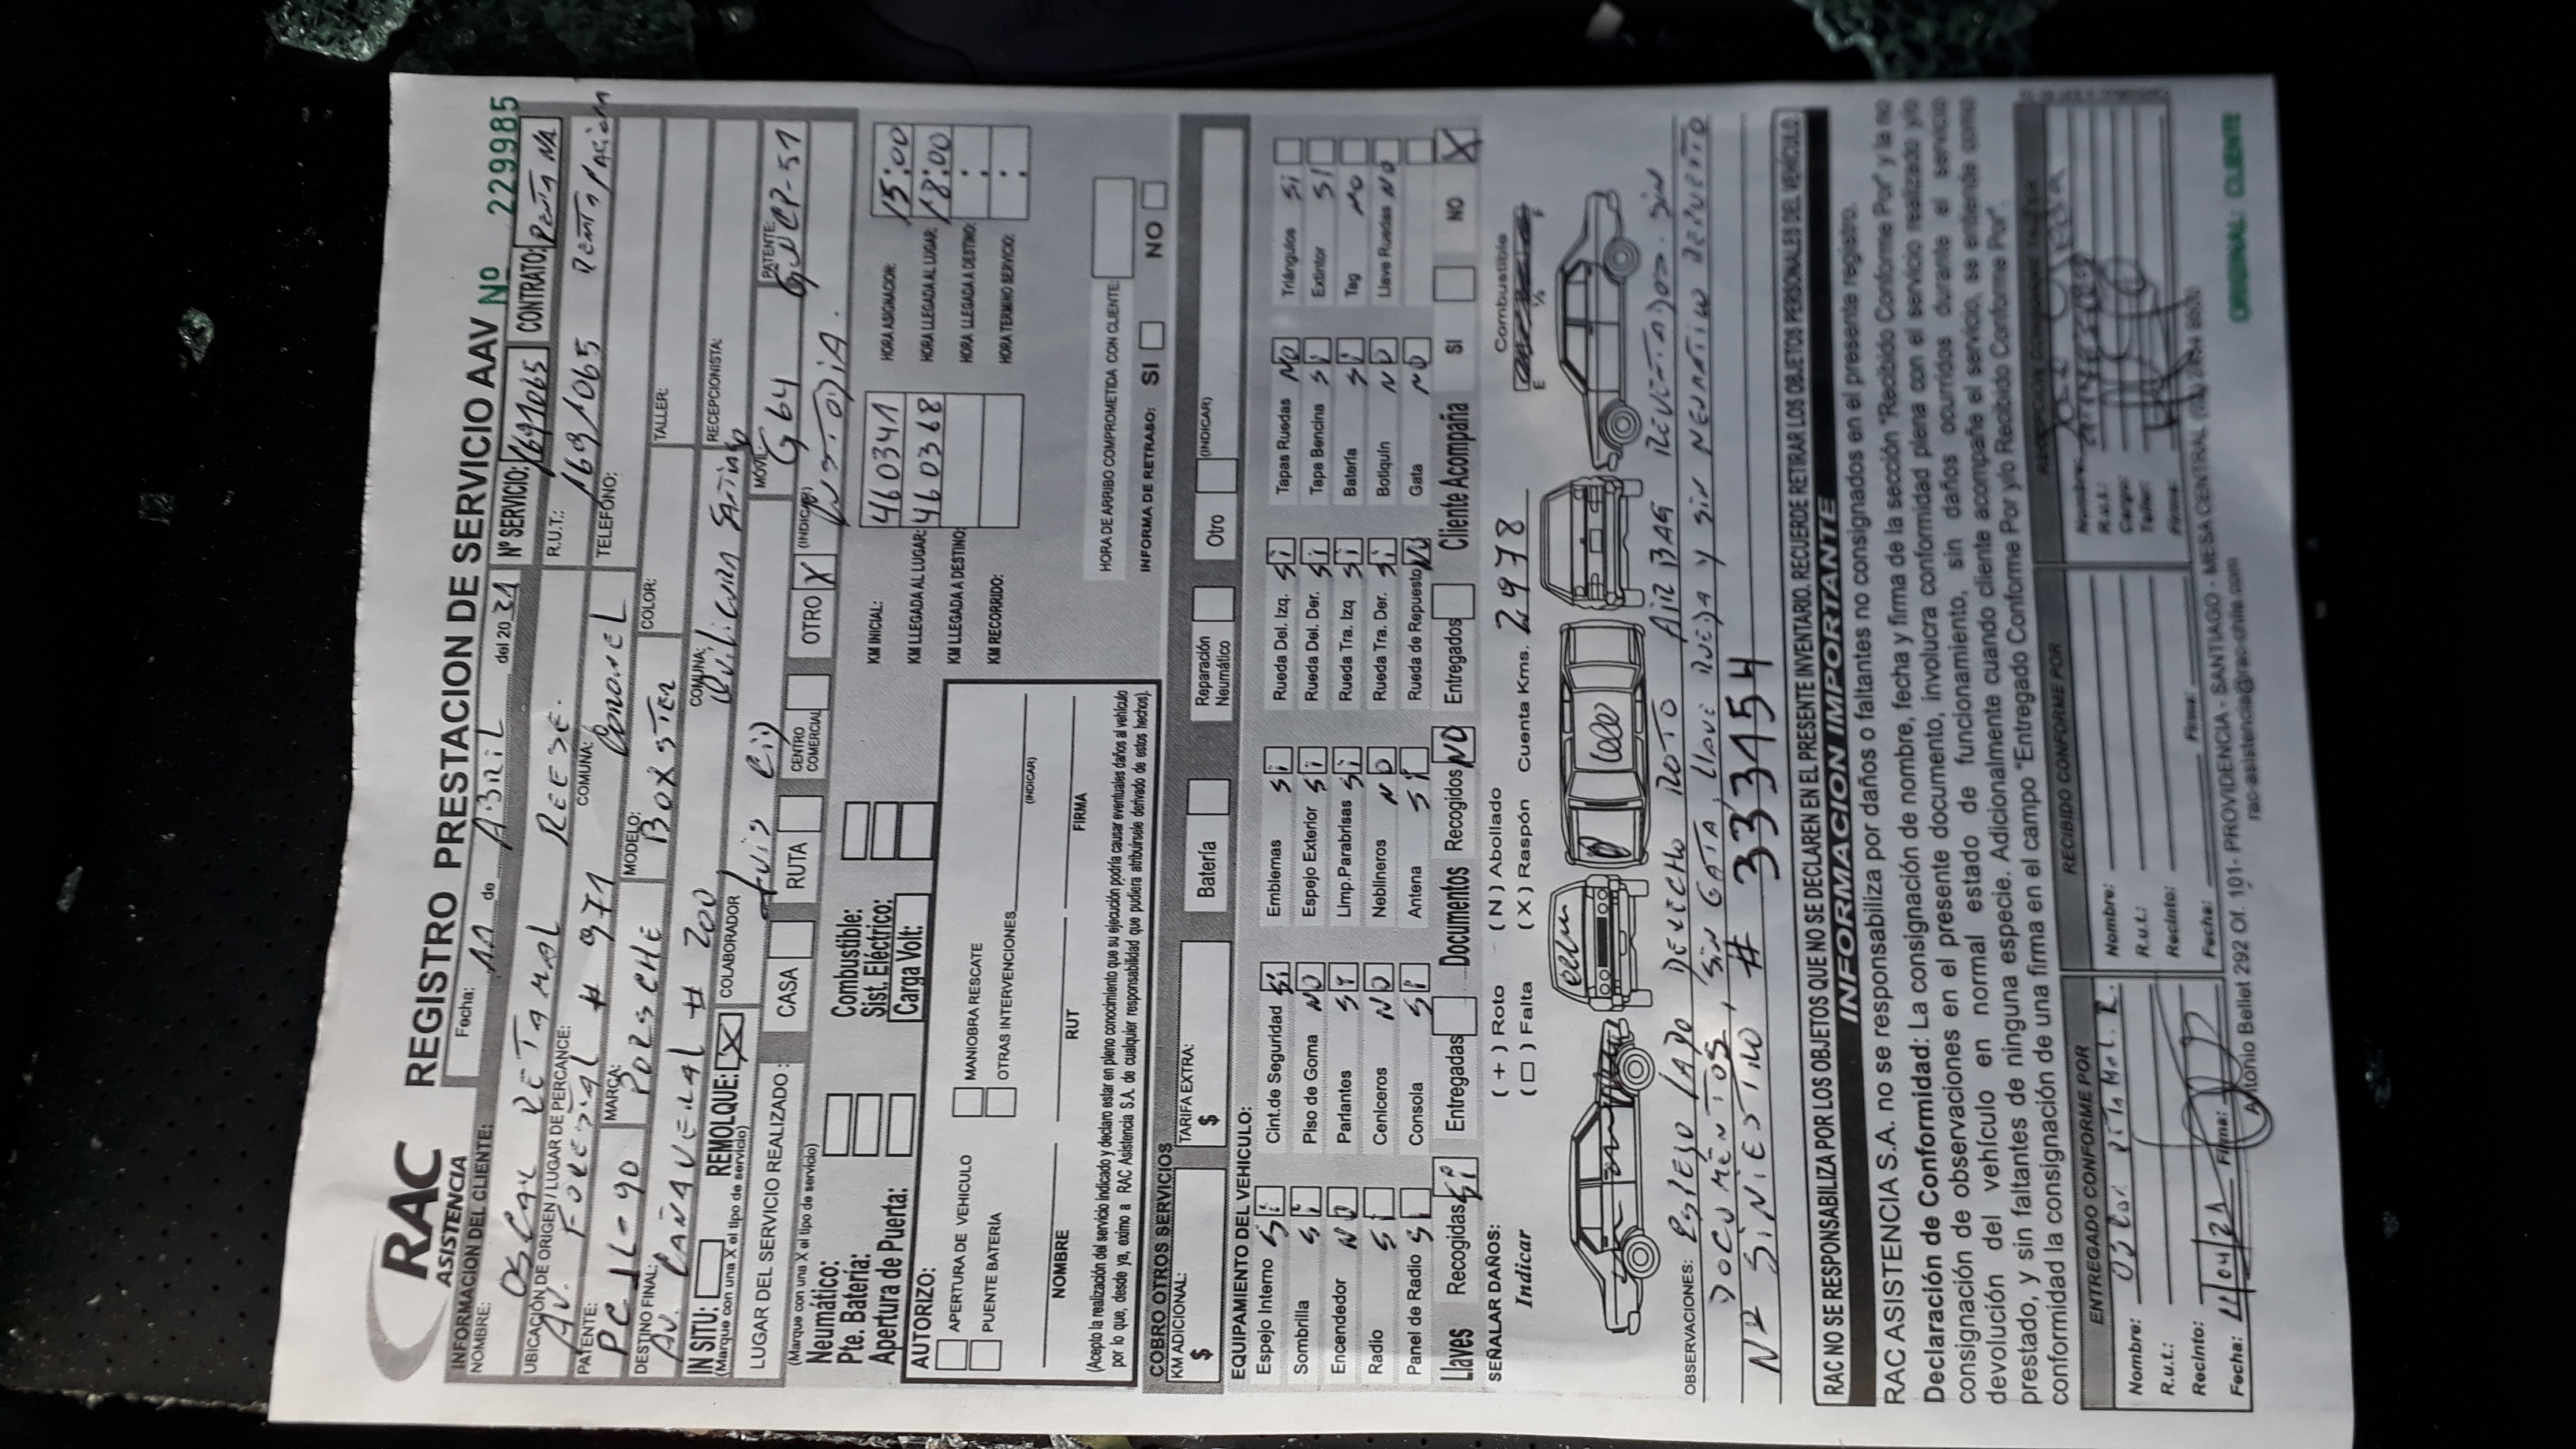 RAC
ASISTENCIA
REGISTRO PRESTACION DE SERVICIO AAV Nº 229985
INFORMACION DEL CLIENTE:
Fecha: 11 de ABRIL del 20 21
Nº SERVICIO: 1691065 CONTRATO: RENTA NA
NOMBRE: OSCAR RETAMAL REEZE. R.U.T.: 1691065 RENTA NACION
UBICACIÓN DE ORIGEN / LUGAR DE PERCANCE: AV. FORESTAL # 971 COMUNA: CORONEL TELEFONO:
PATENTE: PCJL-90 MARCA: PORSCHE MODELO: BOXSTER COLOR: TALLER:
DESTINO FINAL: AV. CAÑAVERAL # 200 COMUNA: QUILICURA SANTIAGO RECEPCIONISTA:
IN SITU: REMOLQUE: X COLABORADOR MOVIL: G64 PATENTE:
(Marque con una X el tipo de servicio)
LUGAR DEL SERVICIO REALIZADO: CASA RUTA CENTRO COMERCIAL OTRO X (INDICAR) CUSTODIA.
(Marque con una X el tipo de servicio)
Neumático: Combustible:
Pte. Batería: Sist. Eléctrico:
Apertura de Puerta: Carga Volt:
KM INICIAL: 460341 HORA ASIGNACION: 15:00
KM LLEGADA AL LUGAR: 460368 HORA LLEGADA AL LUGAR: 18:00
KM LLEGADA A DESTINO: HORA LLEGADA A DESTINO:
KM RECORRIDO: HORA TERMINO SERVICIO:
AUTORIZO:
APERTURA DE VEHICULO MANIOBRA RESCATE
PUENTE BATERÍA OTRAS INTERVENCIONES (INDICAR)
NOMBRE RUT FIRMA
(Acepto la realización del servicio indicado y declaro estar en pleno conocimiento que su ejecución podría causar eventuales daños al vehículo
por lo que, desde ya, eximo a RAC Asistencia S.A. de cualquier responsabilidad que pudiera atribuírsele derivado de estos hechos).
HORA DE ARRIBO COMPROMETIDA CON CLIENTE:
INFORMA DE RETRASO: SI NO
COBRO OTROS SERVICIOS
KM ADICIONAL: $ TARIFA EXTRA: $ Batería Reparación Neumático Otro (INDICAR)
EQUIPAMIENTO DEL VEHICULO:
Espejo Interno Si Cint.de Seguridad Si Emblemas Si Rueda Del. Izq. Si Tapas Ruedas NO Triángulos Si
Sombrilla Si Piso de Goma NO Espejo Exterior Si Rueda Del. Der. Si Tapa Bencina Si Extintor SI
Encendedor NO Parlantes SI Limp.Parabrisas Si Rueda Tra. Izq Si Batería Si Tag NO
Radio Si Ceniceros NO Neblineros NO Rueda Tra. Der. Si Botiquín NO Llave Ruedas NO
Panel de Radio Si Consola Si Antena Si Rueda de Repuesto NO Gata NO
Llaves Recogidas Si Entregadas Documentos Recogidos NO Entregados Cliente Acompaña SI NO X
SEÑALAR DAÑOS: ( + ) Roto ( N ) Abollado
Indicar ( □ ) Falta ( X ) Raspón Cuenta Kms. 2978 Combustible
E ½ F
OBSERVACIONES: ESPEJO LADO DERECHO ROTO AIR BAG REVENTADOS. SIN
DOCUMENTOS, SIN GATA, LLAVE RUEDA Y SIN NEUMATICO REPUESTO
NR SINIESTRO, # 33454
RAC NO SE RESPONSABILIZA POR LOS OBJETOS QUE NO SE DECLAREN EN EL PRESENTE INVENTARIO. RECUERDE RETIRAR LOS OBJETOS PERSONALES DEL VEHÍCULO
INFORMACION IMPORTANTE
RAC ASISTENCIA S.A. no se responsabiliza por daños o faltantes no consignados en el presente registro.
Declaración de Conformidad: La consignación de nombre, fecha y firma de la sección "Recibido Conforme Por" y la no
consignación de observaciones en el presente documento, involucra conformidad plena con el servicio realizado y/o
devolución del vehículo en normal estado de funcionamiento, sin daños ocurridos durante el servicio
prestado, y sin faltantes de ninguna especie. Adicionalmente cuando cliente acompañe el servicio, se entiende como
conformidad la consignación de una firma en el campo "Entregado Conforme Por y/o Recibido Conforme Por".
ENTREGADO CONFORME POR
Nombre: OSCAR RETAMAL R.
R.u.t.:
Recinto:
Fecha: 11/04/21 Firma:
RECIBIDO CONFORME POR
Nombre:
R.u.t.:
Recinto:
Fecha: Firma:
Nombre:
R.u.t.:
Cargo:
Taller:
Firma:
Antonio Bellet 292 Of. 101- PROVIDENCIA - SANTIAGO - MESA CENTRAL
rac-asistencia@rac-chile.com
ORIGINAL: CLIENTE